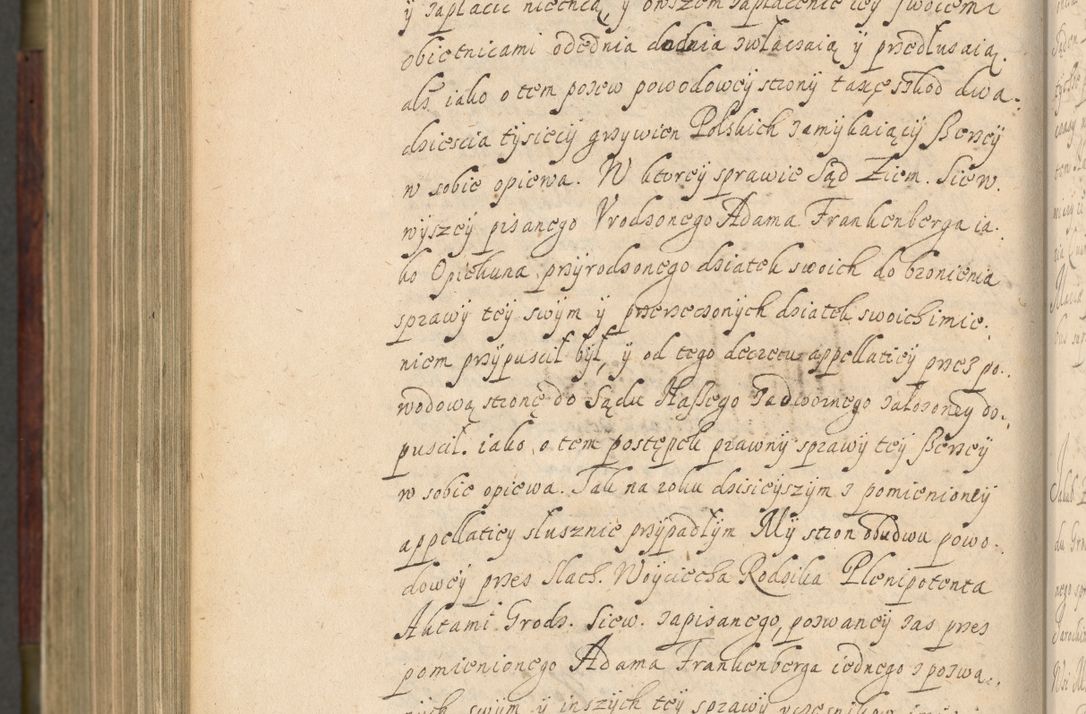 ÿ zapłacić niechcą, ÿ owszem zapłacenie iey swoiemi
obietnicami odednia dodnia zwłaczaią ÿ przedłuzaią.
ale iako o tem pozew powodoweÿ stronÿ taxę szkod dwa.
dziescia tÿsięcÿ grzÿwien Polskich zamÿkaiącÿ sserzeÿ
w sobie opiewa. W ktoreÿ sprawie Sąd Ziem. Siew.
wÿszeÿ pisanego Vrodzonego Adama Frankenberga ia.
ko Opiekuna przÿrodzonego dziatek swoich do bronienia
sprawÿ teÿ swÿm ÿ przerzeczonÿch dziatek swoich imie.
niem przÿpuscił bÿł, ÿ od tego decretu appellatieÿ przez po.
wodową stronę do Sądu Nassego Zadwornego założoneÿ do.
puscił. iako o tem postępek prawnÿ sprawÿ teÿ sserzeÿ
w sobie opiewa. Tak na roku dzisieÿszÿm z pomienioneÿ
appellatieÿ słusznie przÿpadłÿm Mÿ stron obudwu powo.
doweÿ przez Slach. Woÿciecha Rodzika Plenipotenta
Aktami Grodz. Siew. zapisanego, pozwaneÿ zas przez
pomienionego Adama Frankenberga iednego z pozwa.
nÿch swÿm ÿ inszÿch teÿ sprawÿ